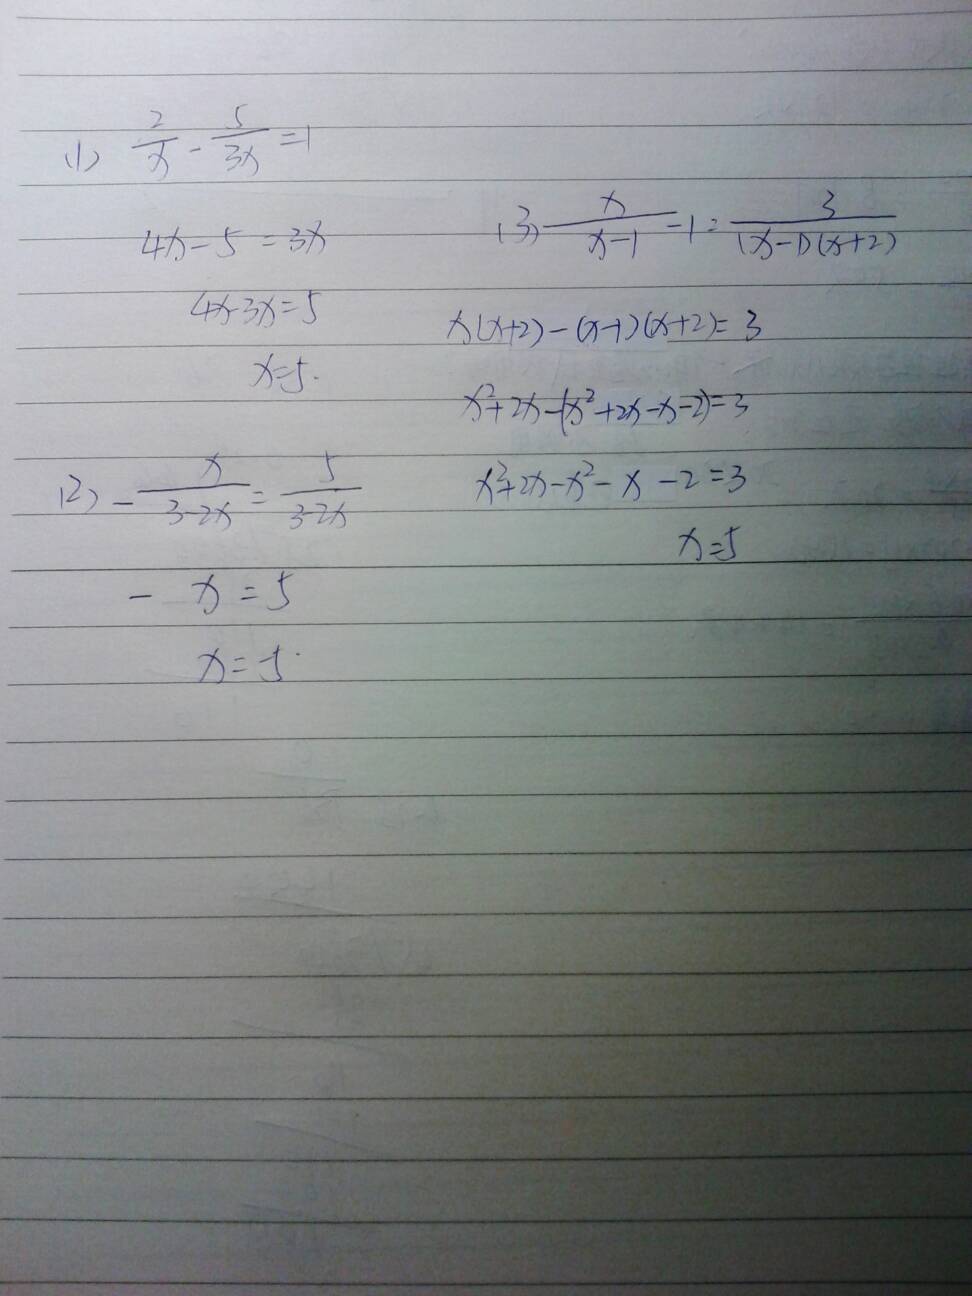 (1) 2/x - 5/3x = 1
4x - 5 = 3x
4x-3x = 5
x=5.
(2) - x/3-2x = 5/3-2x
- x = 5
x = -5.
(3) x/x-1 - 1 = 3/(x-1)(x+2)
x(x+2) - (x-1)(x+2) = 3
x²+2x-(x²+2x-x-2)=3
x²+2x-x²-x-2=3
x=5